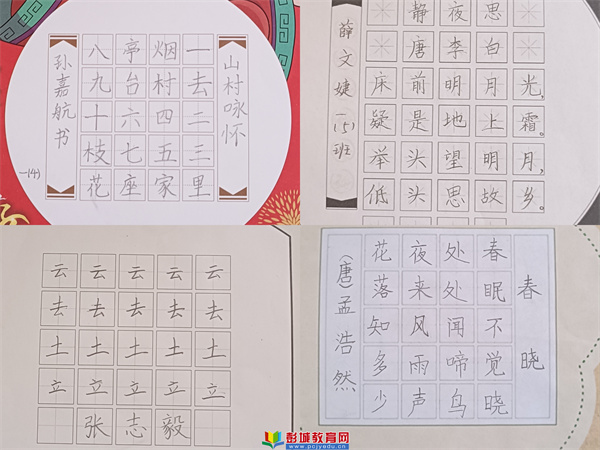 山村咏怀
一去二三里
烟村四五家
亭台六七座
八九十枝花
孙嘉航书
一(4)
静夜思
唐李白
床前明月光,
疑是地上霜。
举头望明月,
低头思故乡。
薛文婕一(5)班
云云云云云
去去去去去
土土土土土
立立立立立
张志毅
春晓
春眠不觉晓
处处闻啼鸟
夜来风雨声
花落知多少
(唐)孟浩然
彭城教育网
www.pcjyedu.cn